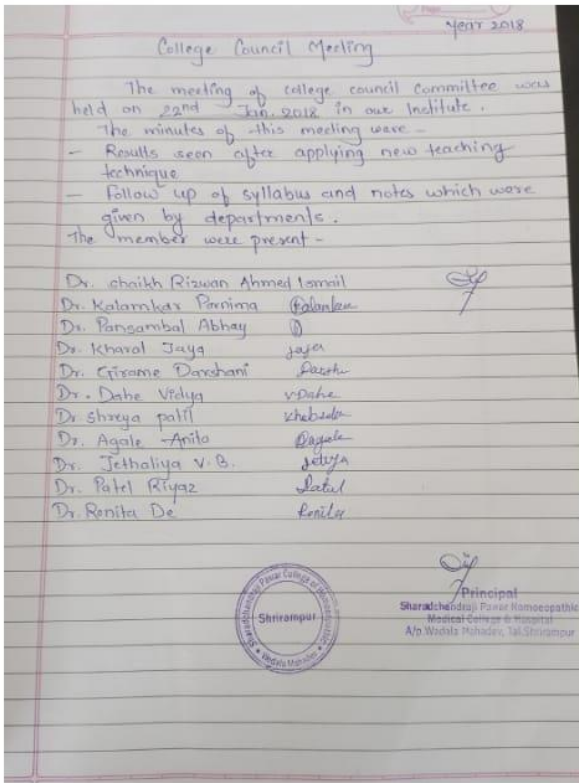 Year 2018
College Council Meeting
The meeting of college council committee was
held on 22nd Jan. 2018 in our Institute.
The minutes of this meeting were -
- Results seen after applying new teaching
technique
- Follow up of syllabus and notes which were
given by departments.
The member were present -
Dr. Shaikh Rizwan Ahmed Ismail
Dr. Kalamkar Pornima
Dr. Pansambal Abhay
Dr. Kharal Jaya Jaya
Dr. Girame Darshani
Dr. Dahe Vidya VDahe
Dr. Shreya patil
Dr. Agale Anita
Dr. Jethaliya V.B.
Dr. Patel Riyaz Patel
Dr. Ronita De Ronita
Sharadchandraji Pawar College of Homoeopathic
Shrirampur
Wadala Mahadev
Principal
Sharadchandraji Pawar Homoeopathic
Medical College & Hospital
A/p Wadala Mahadev, Tal.Shrirampur